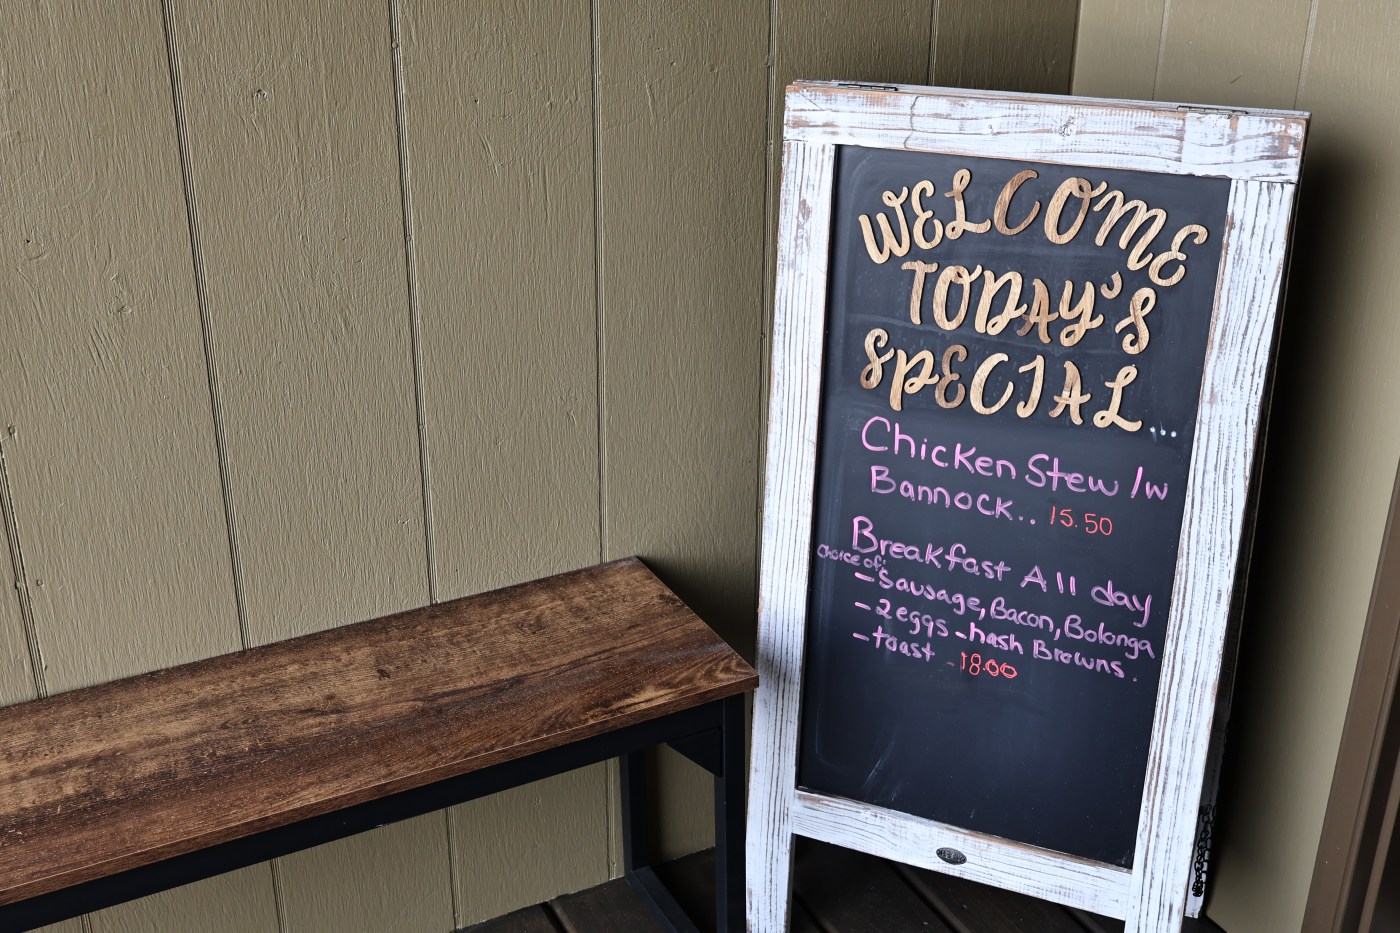 WELCOME
TODAY'S
SPECIAL...
Chicken Stew /w
Bannock.. 15.50
Breakfast All day
choice of:
- Sausage, Bacon, Bolonga
- 2 eggs - hash Browns.
- toast - 18.00